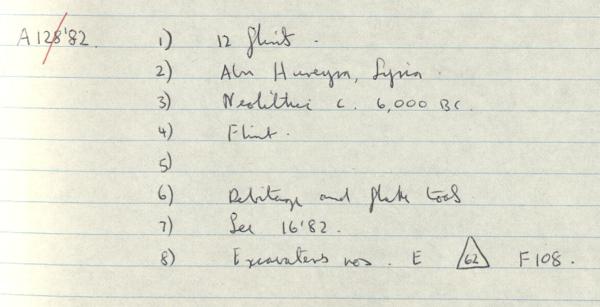 A128'82. 1) 12 flints.
2) Abu Hureyra, Syria.
3) Neolithic c. 6,000 BC.
4) Flint.
5)
6) Debitage and flake tools
7) See 16'82.
8) Excavators nos. E 62 F108.